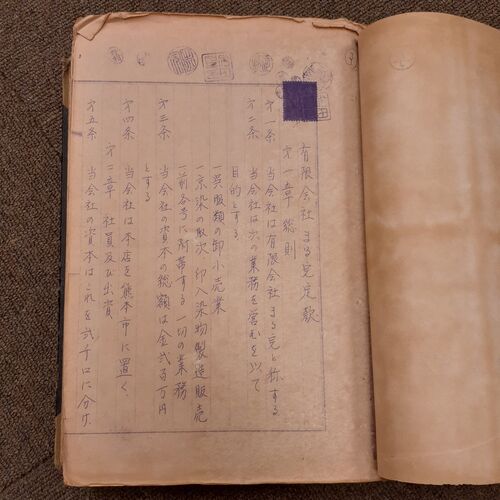 有限会社まる完定款
才一章 総則
才一条 当会社は有限会社まる完と称する
才二条 当会社は次の業務を営むを以て
目的とする
一呉服類の卸小売業
一京染の取次 印入染物製造販売
一前各号に附帯する一切の業務
才三条 当会社の資本の総額は金弐百万円
とする
才四条 当会社は本店を熊本市に置く
才二章 社員及び出資
才五条 当会社の資本はこれを弐千口に分け